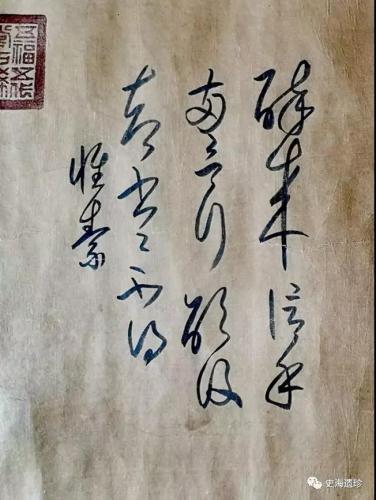 醉來信手
兩三行醒後
却書書不得
懷素
史海遗珍